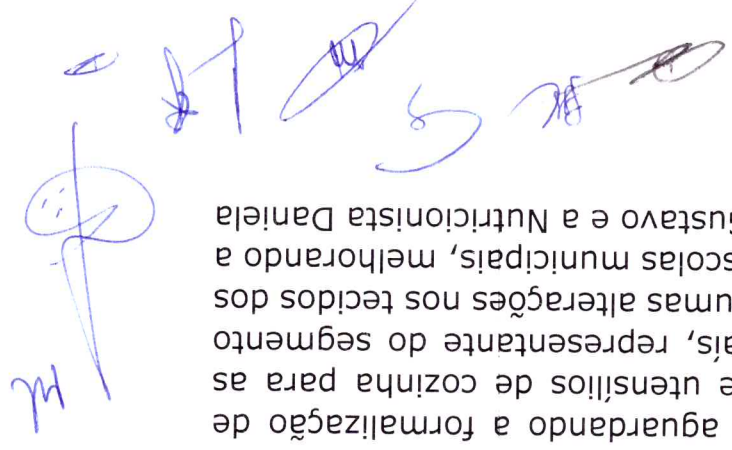 aguardando a formalização de
e utensílsios de cozinha para as
aís, representante do segmento
umas alterações nos tecidos dos
scolas municipais, melhorando a
Gustavo e a Nutricionista Daniela